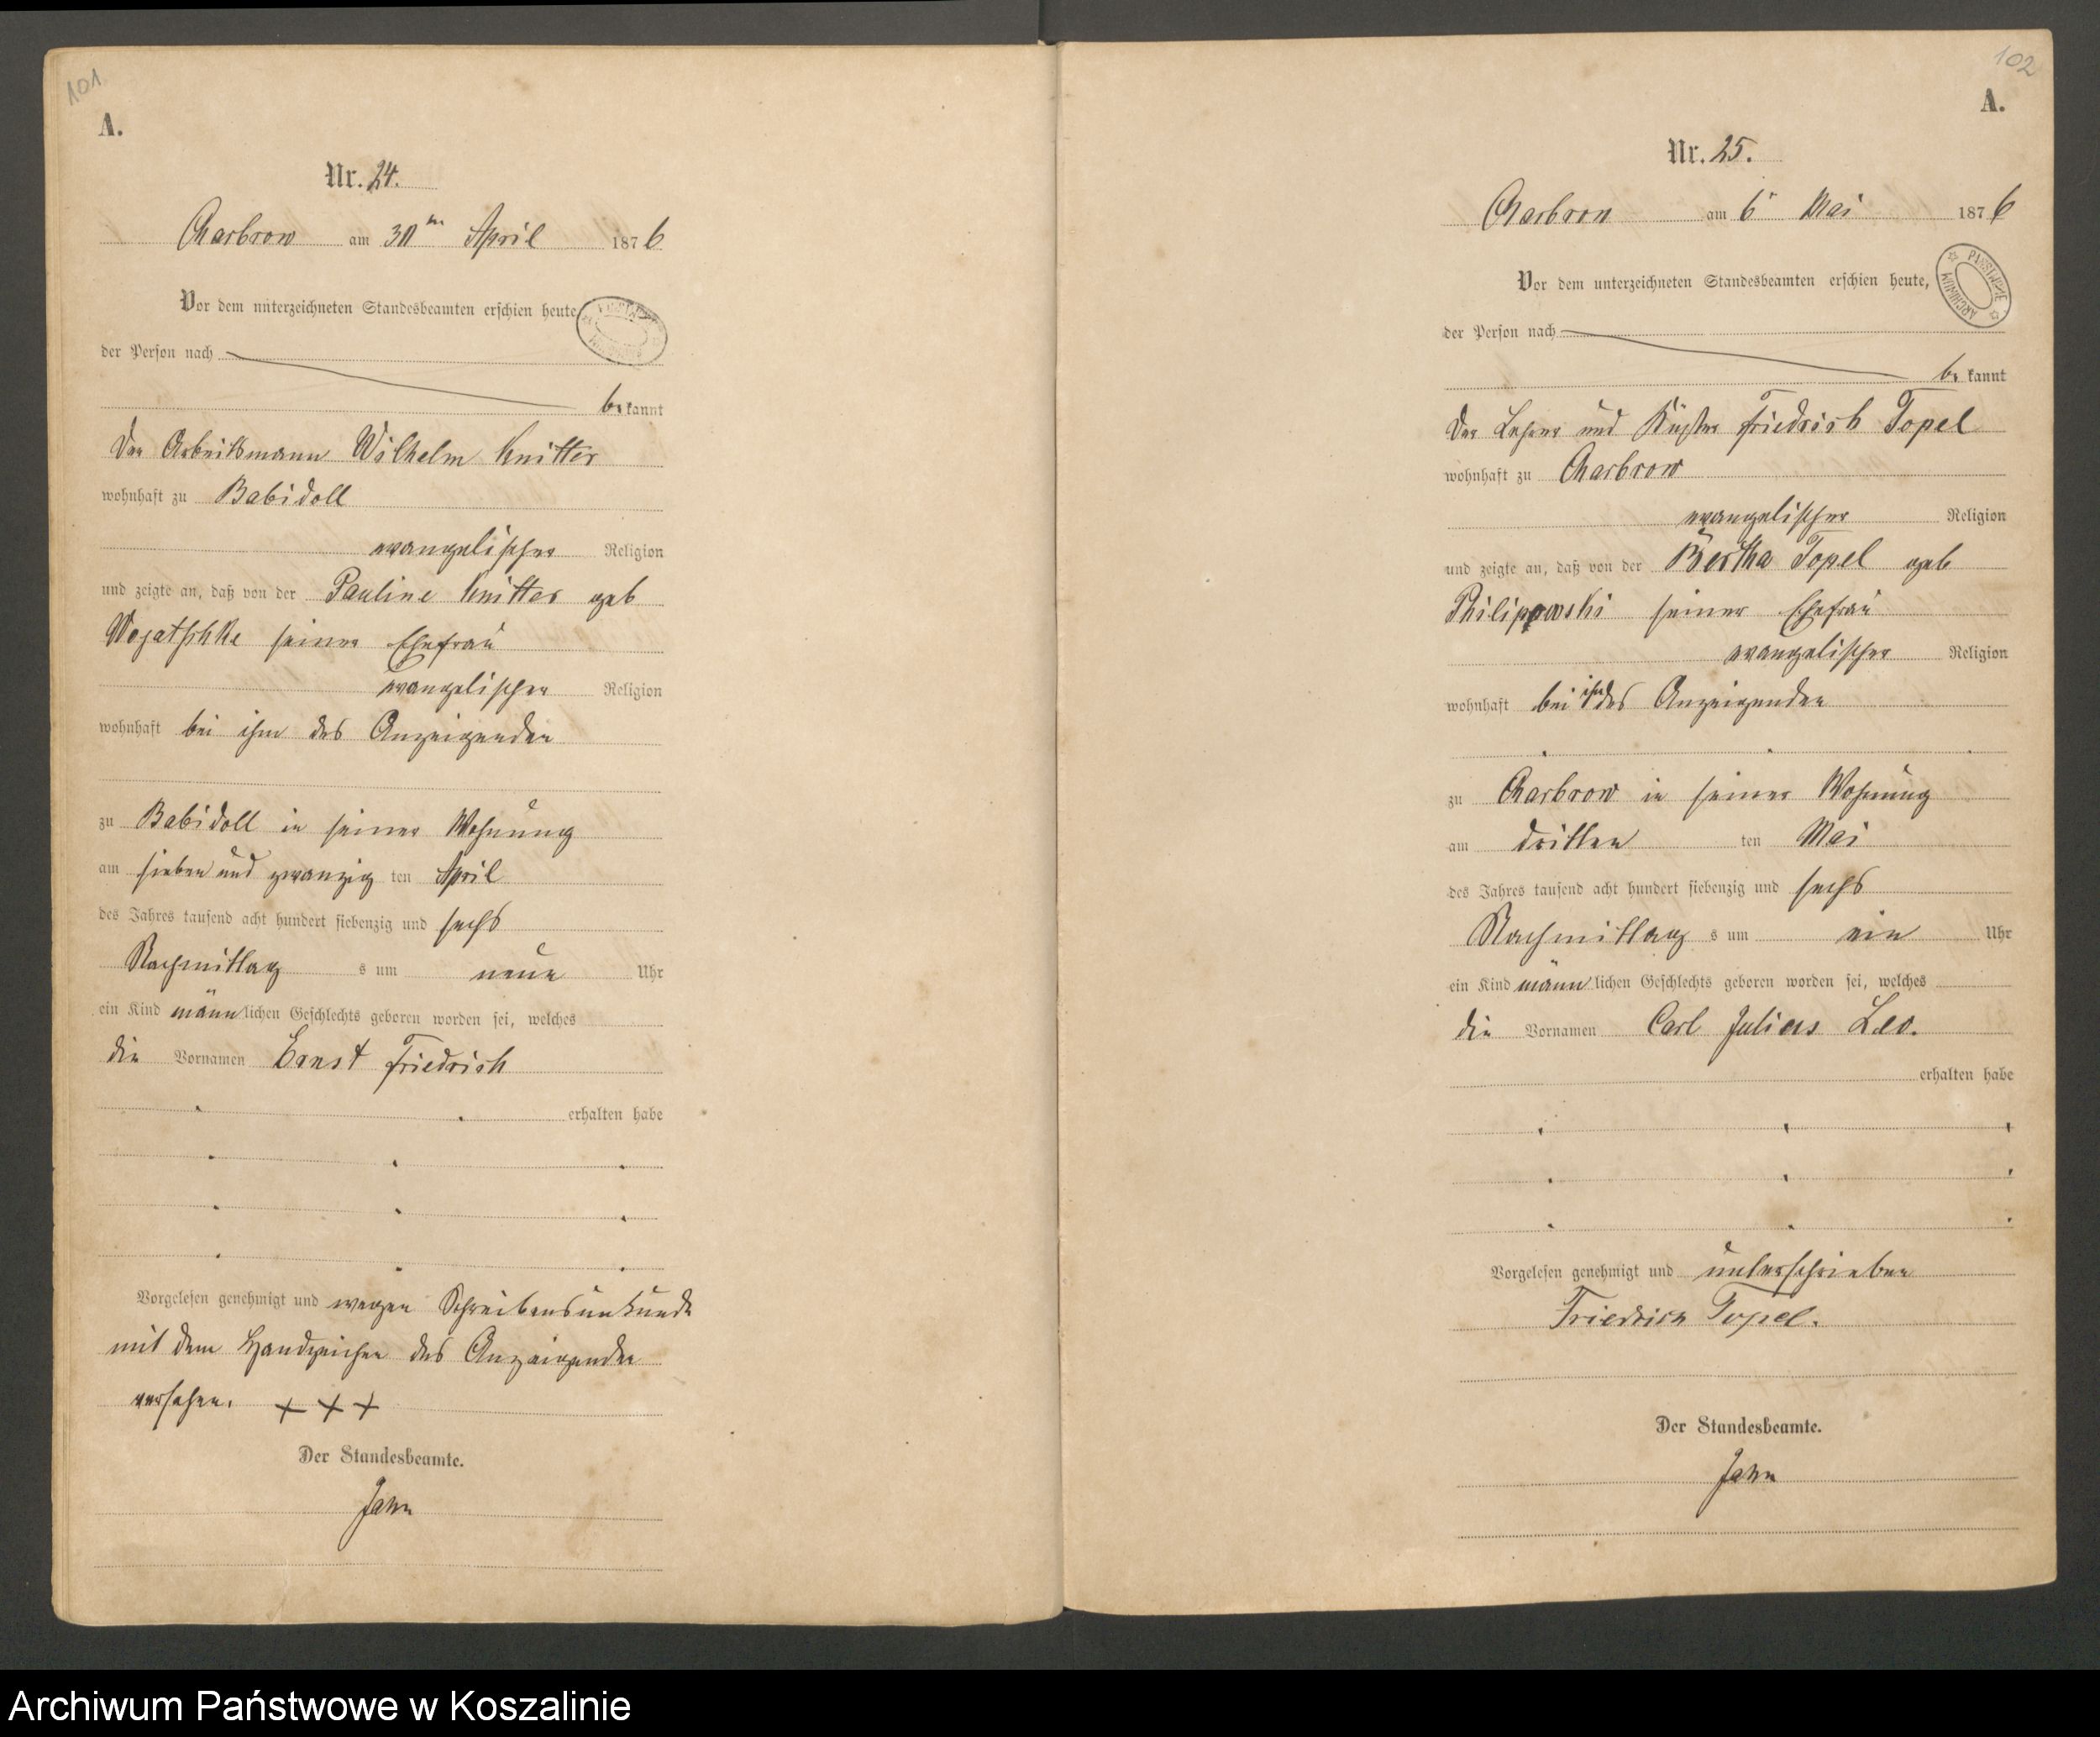 101.
A.
Nr. 24.
Charbrow am 30ten April 1876
Vor dem unterzeichneten Standesbeamten erschien heute
der Person nach
bekannt
Der Arbeitsmann Wilhelm Knitter
wohnhaft zu Babidoll
evangelischer Religion
und zeigte an, daß von der Pauline Knitter geb
Wojatschke seiner Ehefrau
evangelischer Religion
wohnhaft bei ihm des Anzeigenden
zu Babidoll in seiner Wohnung
am sieben und zwanzig ten April
des Jahres tausend acht hundert siebenzig und sechs
Nachmittag s um neun Uhr
ein Kind männlichen Geschlechts geboren worden sei, welches
die Vornamen Ernst Friedrich
erhalten habe
Vorgelesen genehmigt und wegen Schreibensunkunde
mit dem Handzeichen des Anzeigenden
versehen. + + +
Der Standesbeamte.
Jahn
102
A.
Nr. 25.
Charbrow am 6 Mai 1876
Vor dem unterzeichneten Standesbeamten erschien heute,
ARCHIWUM PAŃSTWOWE
der Person nach
bekannt
Der Lehrer und Küster Friedrich Topel
wohnhaft zu Charbrow
evangelischer Religion
und zeigte an, daß von der Bertha Topel geb
Philipowski seiner Ehefrau
evangelischer Religion
wohnhaft bei ihm des Anzeigenden
zu Charbrow in seiner Wohnung
am dritten ten Mai
des Jahres tausend acht hundert siebenzig und sechs
Nachmittag s um ein Uhr
ein Kind männlichen Geschlechts geboren worden sei, welches
die Vornamen Carl Julius Leo.
erhalten habe
Vorgelesen genehmigt und unterschrieben
Friedrich Topel.
Der Standesbeamte.
Jahn
Archiwum Państwowe w Koszalinie